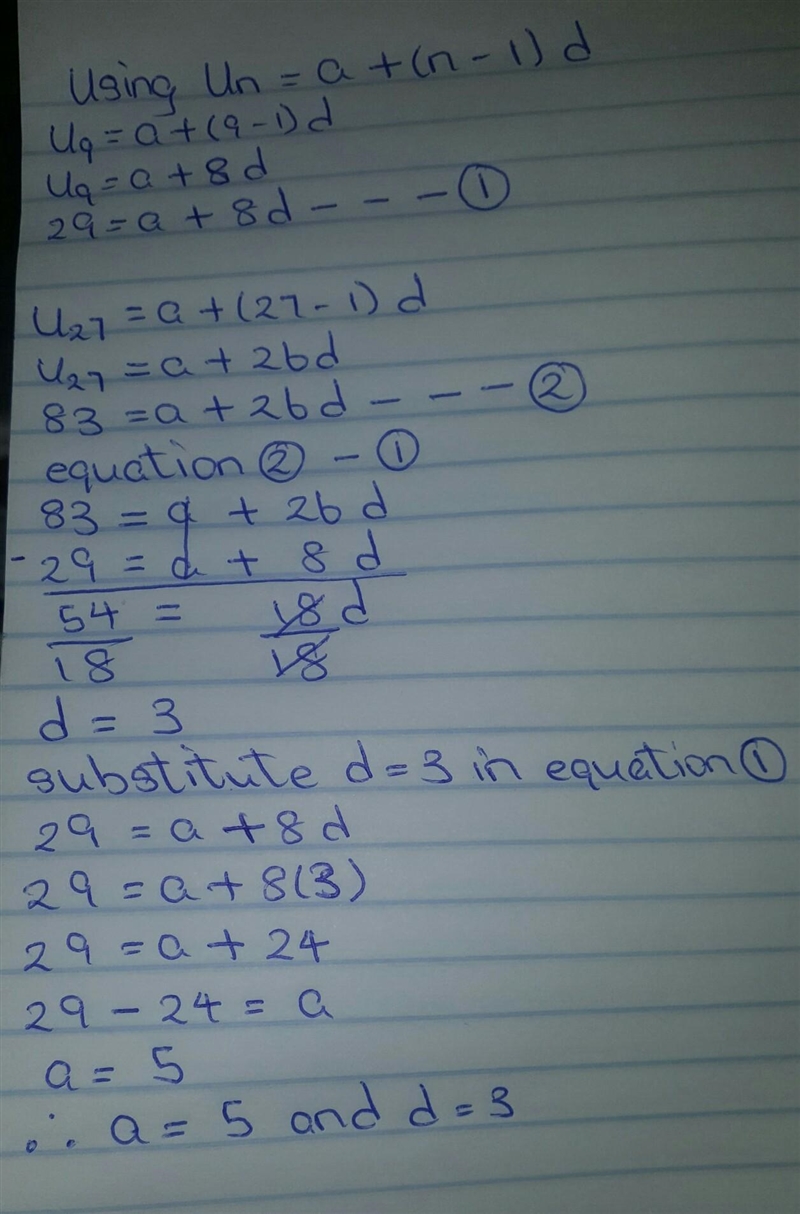 Using Un = a + (n - 1) d
U9 = a + (9-1) d
U9 = a + 8d
29 = a + 8d - - - ①
U27 = a + (27 - 1) d
U27 = a + 26d
83 = a + 26d - - - ②
equation ② - ①
83 = a + 26 d
- 29 = a + 8 d
54 = 18 d
18 18
d = 3
substitute d = 3 in equation ①
29 = a + 8d
29 = a + 8(3)
29 = a + 24
29 - 24 = a
a = 5
∴ a = 5 and d = 3